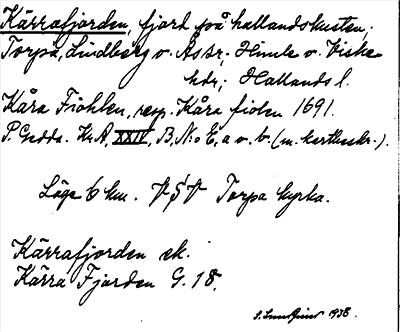 Kärrafjorden, fjord på hallandskusten;
Torpa, Lindberg o. Ås sr; Himle o. Viske
hdr; Hallands l.
Kåra Fiohlen, resp. Kåra fiolen 1691.
P. Gedda. Kr. A, XXIV, B, N:o E, a o. b. (m. karttexskr.).
Läge 6 km. V S V Torpa kyrka.
Kärrafjorden ek.
Kärra Fjorden G. 18.
1938.